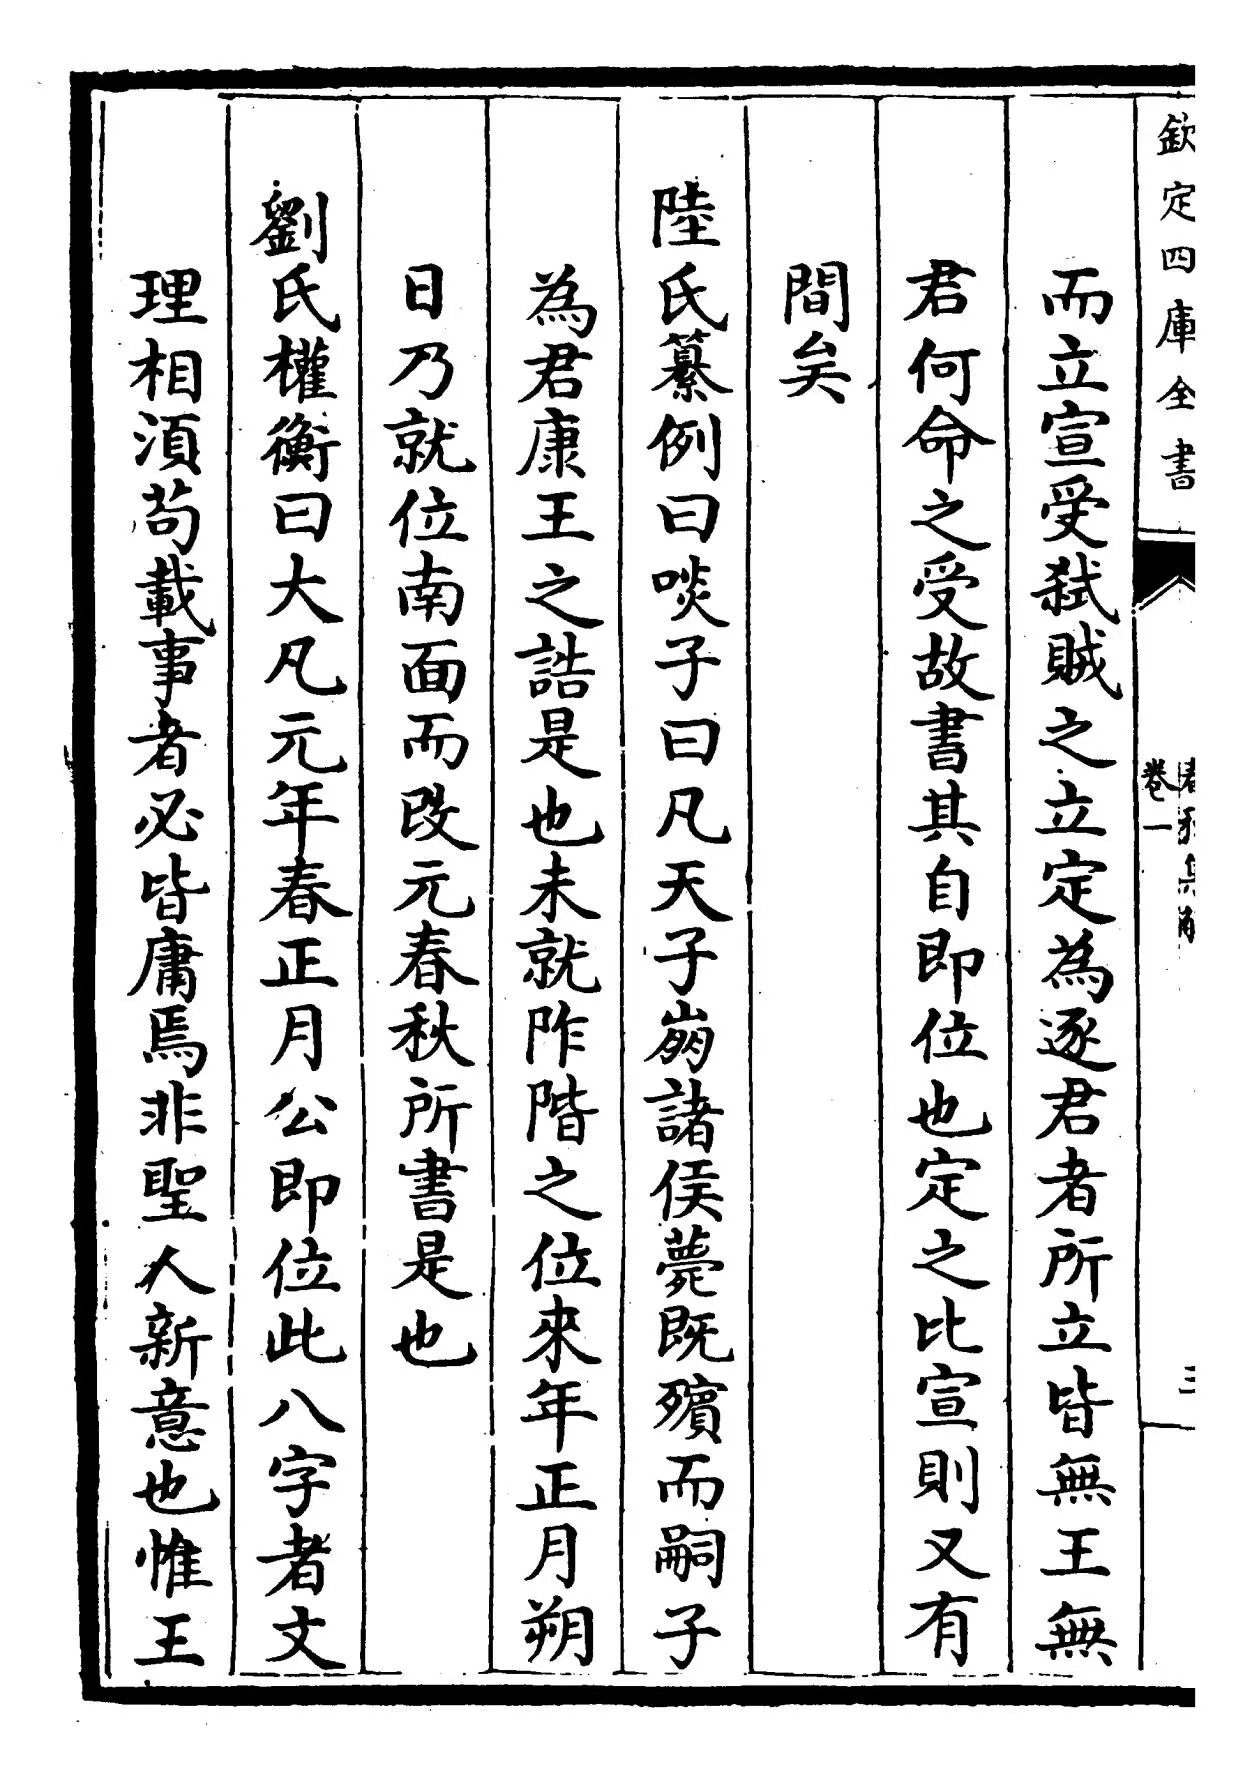 欽定四庫全書
春秋集解
卷一
三
而立宣受弑賊之立定為逐君者所立皆無王無
君何命之受故書其自即位也定之比宣則又有
間矣
陸氏纂例曰啖子曰凡天子崩諸侯薨既殯而嗣子
為君康王之誥是也未就阼階之位來年正月朔
日乃就位南面而改元春秋所書是也
劉氏權衡曰大凡元年春正月公即位此八字者文
理相湏苟載事者必皆庸焉非聖人新意也惟王